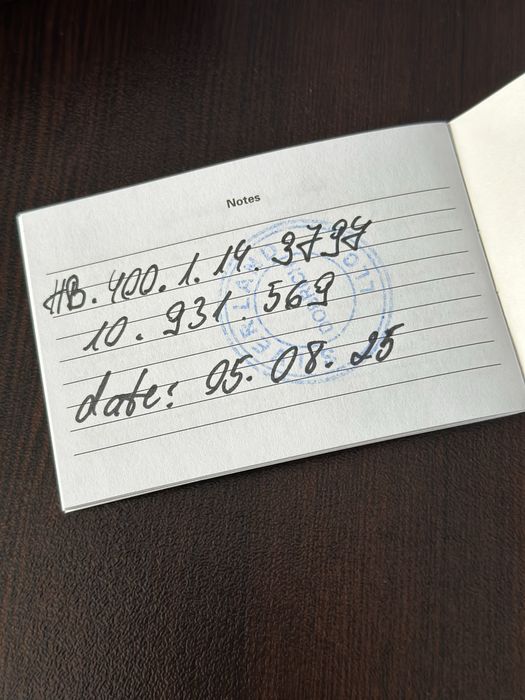 Notes
HB.400.1.14.9797
10.931.569
date: 05.08.25